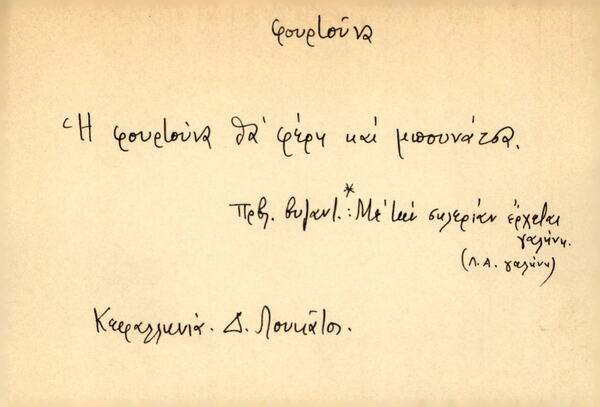 φουρτούνα
Ἡ φουρτούνα θὰ φέρη καὶ μπουνάτσα.
Πρβλ. βυζαντ.*: Μετὰ σκληρίαν ἔρχεται
γαλήνη.
(Λ.Α. γαλήνη)
Κεφαλληνία. Δ. Λουκᾶτος.